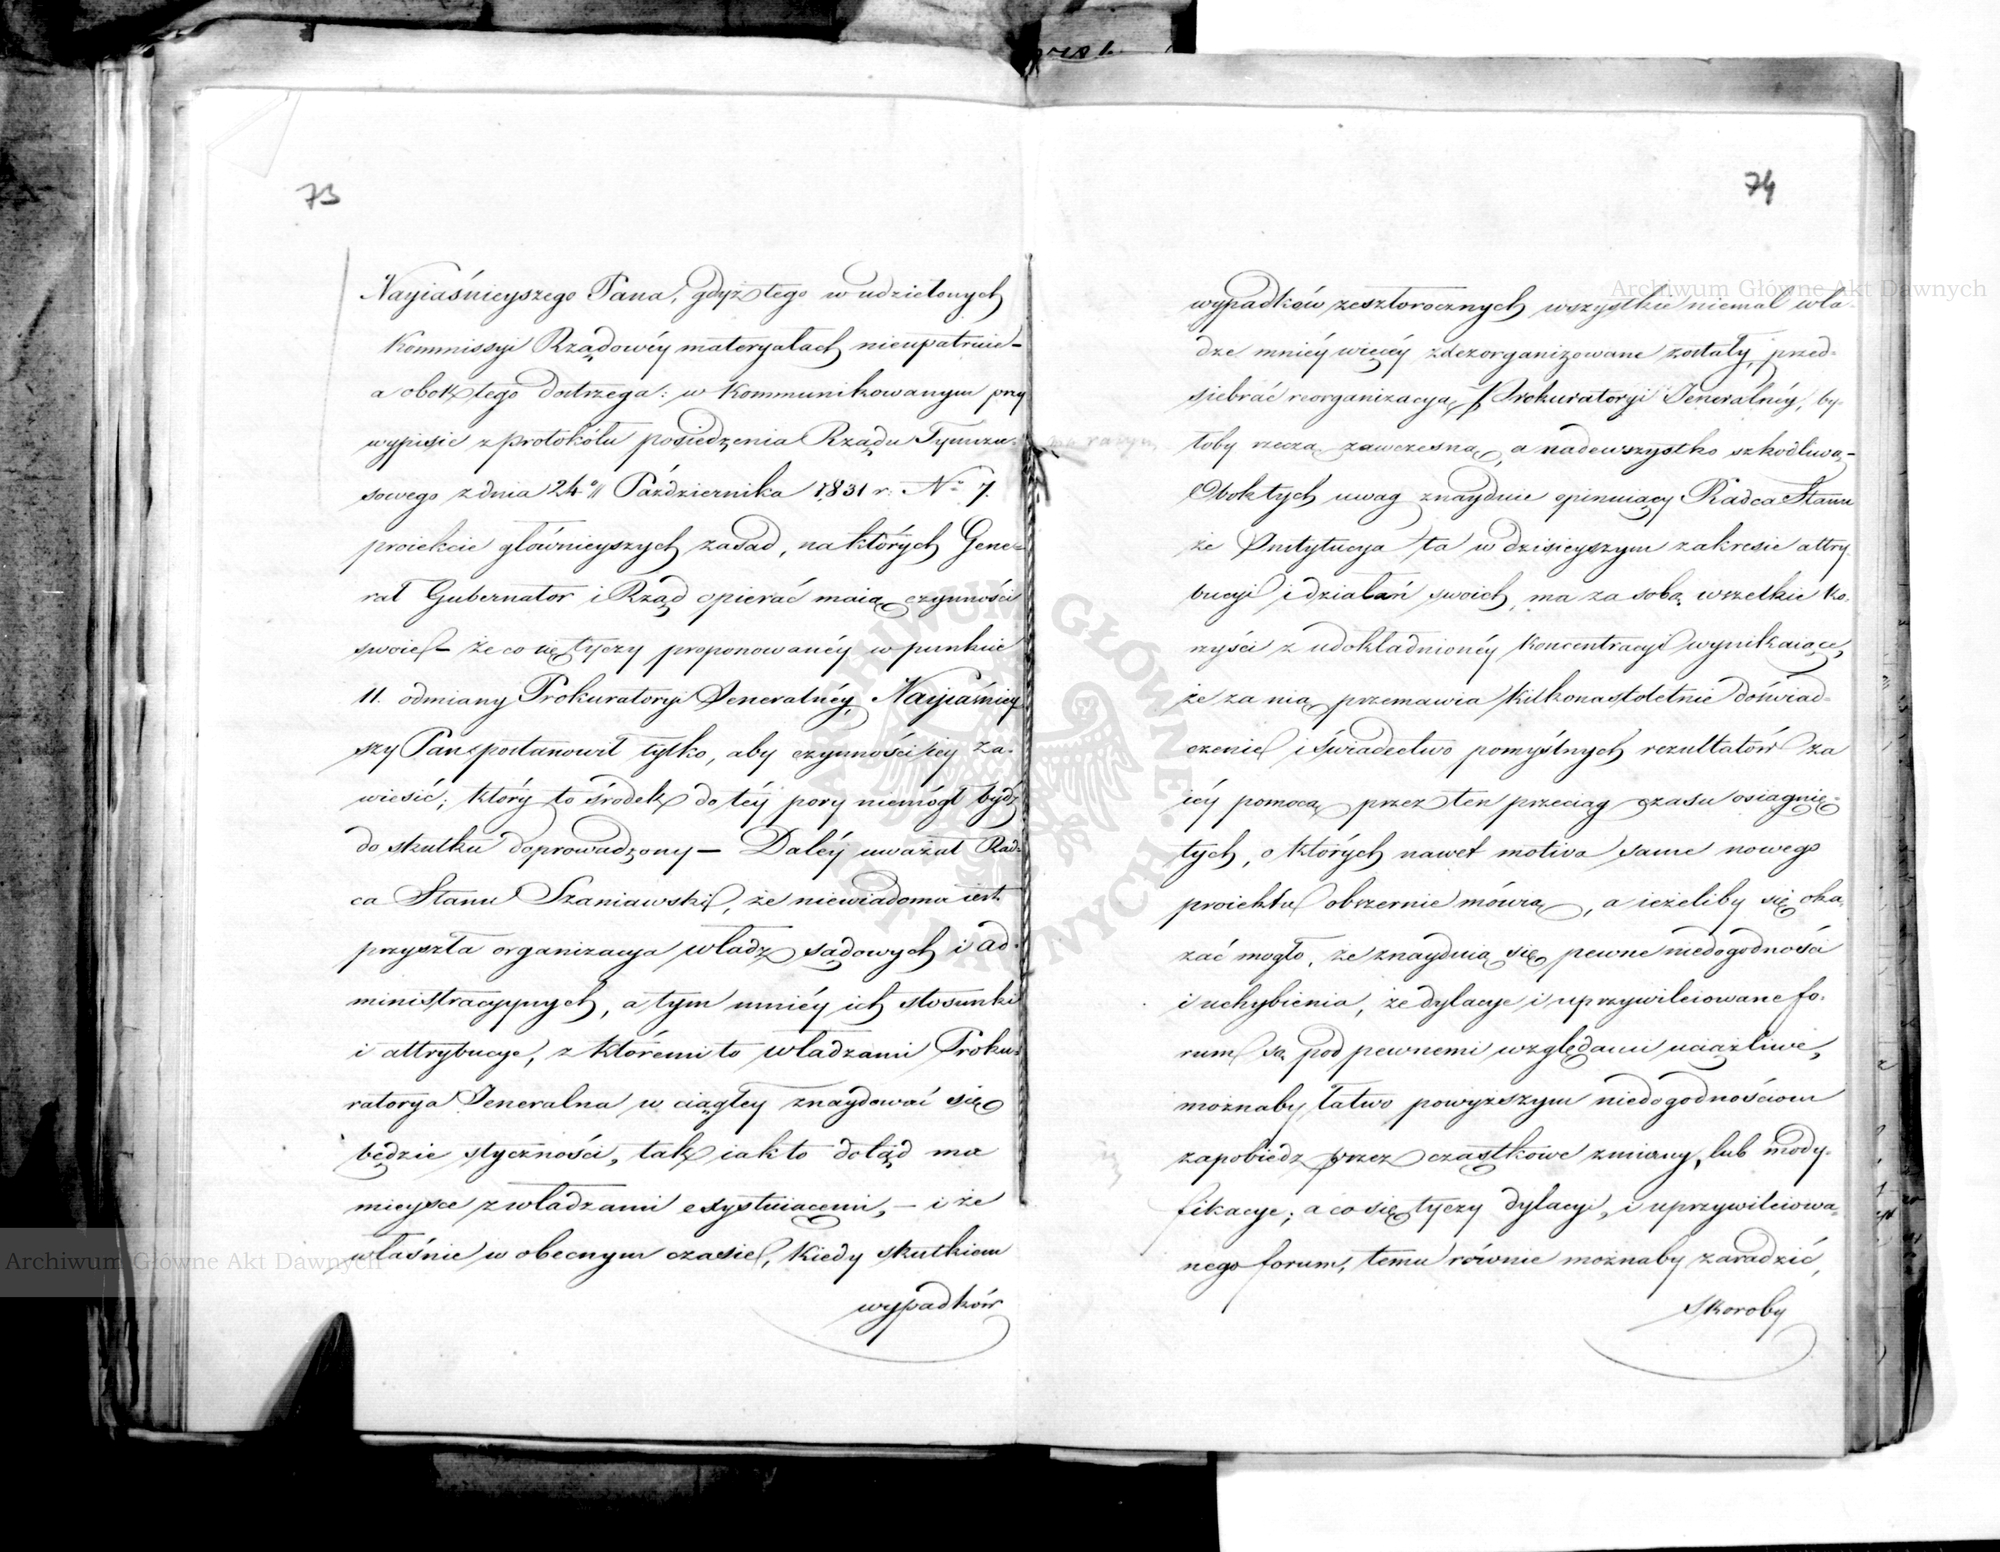 73
Nayiaśnieyszego Pana, gdyż tego w udzielonych
Kommissyi Rządowéy materyałach nieupatruie –
a obok tego dostrzega: w kommunikowanym przy
wypisie z protokółu posiedzenia Rządu Tymcza-
sowego z dnia 24º/11 Października 1831 r. Nº 7.
proiekcie główniejszych zasad, na których Gene-
rał Gubernator i Rząd opierać maią czynności
swoie – że co się tyczy proponowanéy w punkcie
11. odmiany Prokuratoryi Jeneralnéy, Nayiaśniey
szy Pan postanowił tylko, aby czynności iéy za-
wiesić; który to środek do téy pory niemógł bydź
do skutku doprowadzony – Daléy uważał Rad-
ca Stanu Szaniawski, że niewiadoma iest
przyszła organizacya władz sądowych i ad-
ministracyynych, a tym mniéy ich stosunki
i attrybucye, z któremi to władzami Proku-
ratorya Jeneralna w ciągłey znaydować się
będzie styczności, tak iak to dotąd ma
mieysce z władzami exystuiącemi, – i że
właśnie w obecnym czasie, kiedy skutkiem
wypadków
74
wypadków zeszłorocznych wszystkie niemal wła-
dze mniéy więcéy zdezorganizowane zostały, przed-
siebrać reorganizacyą Prokuratoryi Jeneralnéy, by-
łoby rzeczą zawczesną, a nadewszystko szkodliwą –
Obok tych uwag znayduie opiniuiący Radca Stanu
że Instytucya ta w dzisieyszym zakresie attry
bucyi i działań swoich, ma za sobą wszelkie ko-
rzyści z udokładnionéy koncentracyi wynikaiące,
że za nią przemawia kilkonastoletnie doświad-
czenie i świadectwo pomyślnych rezultatów za
iéy pomocą przez ten przeciąg czasu osiągnię-
tych, o których nawet motiva same nowego
proiektu obszernie mówią, a ieżeliby się oka-
zać mogło, że znayduią się pewne niedogodności
i uchybienia, że dylacye i uprzywileiowane fo-
rum są pod pewnemi względami uciążliwe,
możnaby łatwo powyższym niedogodnościom
zapobiedz przez cząstkowe zmiany, lub mody-
fikacye; a co się tyczy dylacyi, i uprzywileiowa-
nego forum, temu równie możnaby zaradzić,
skoroby
Archiwum Główne Akt Dawnych
Archiwum Główne Akt Dawnych
ARCHIWUM GŁÓWNE AKT DAWNYCH